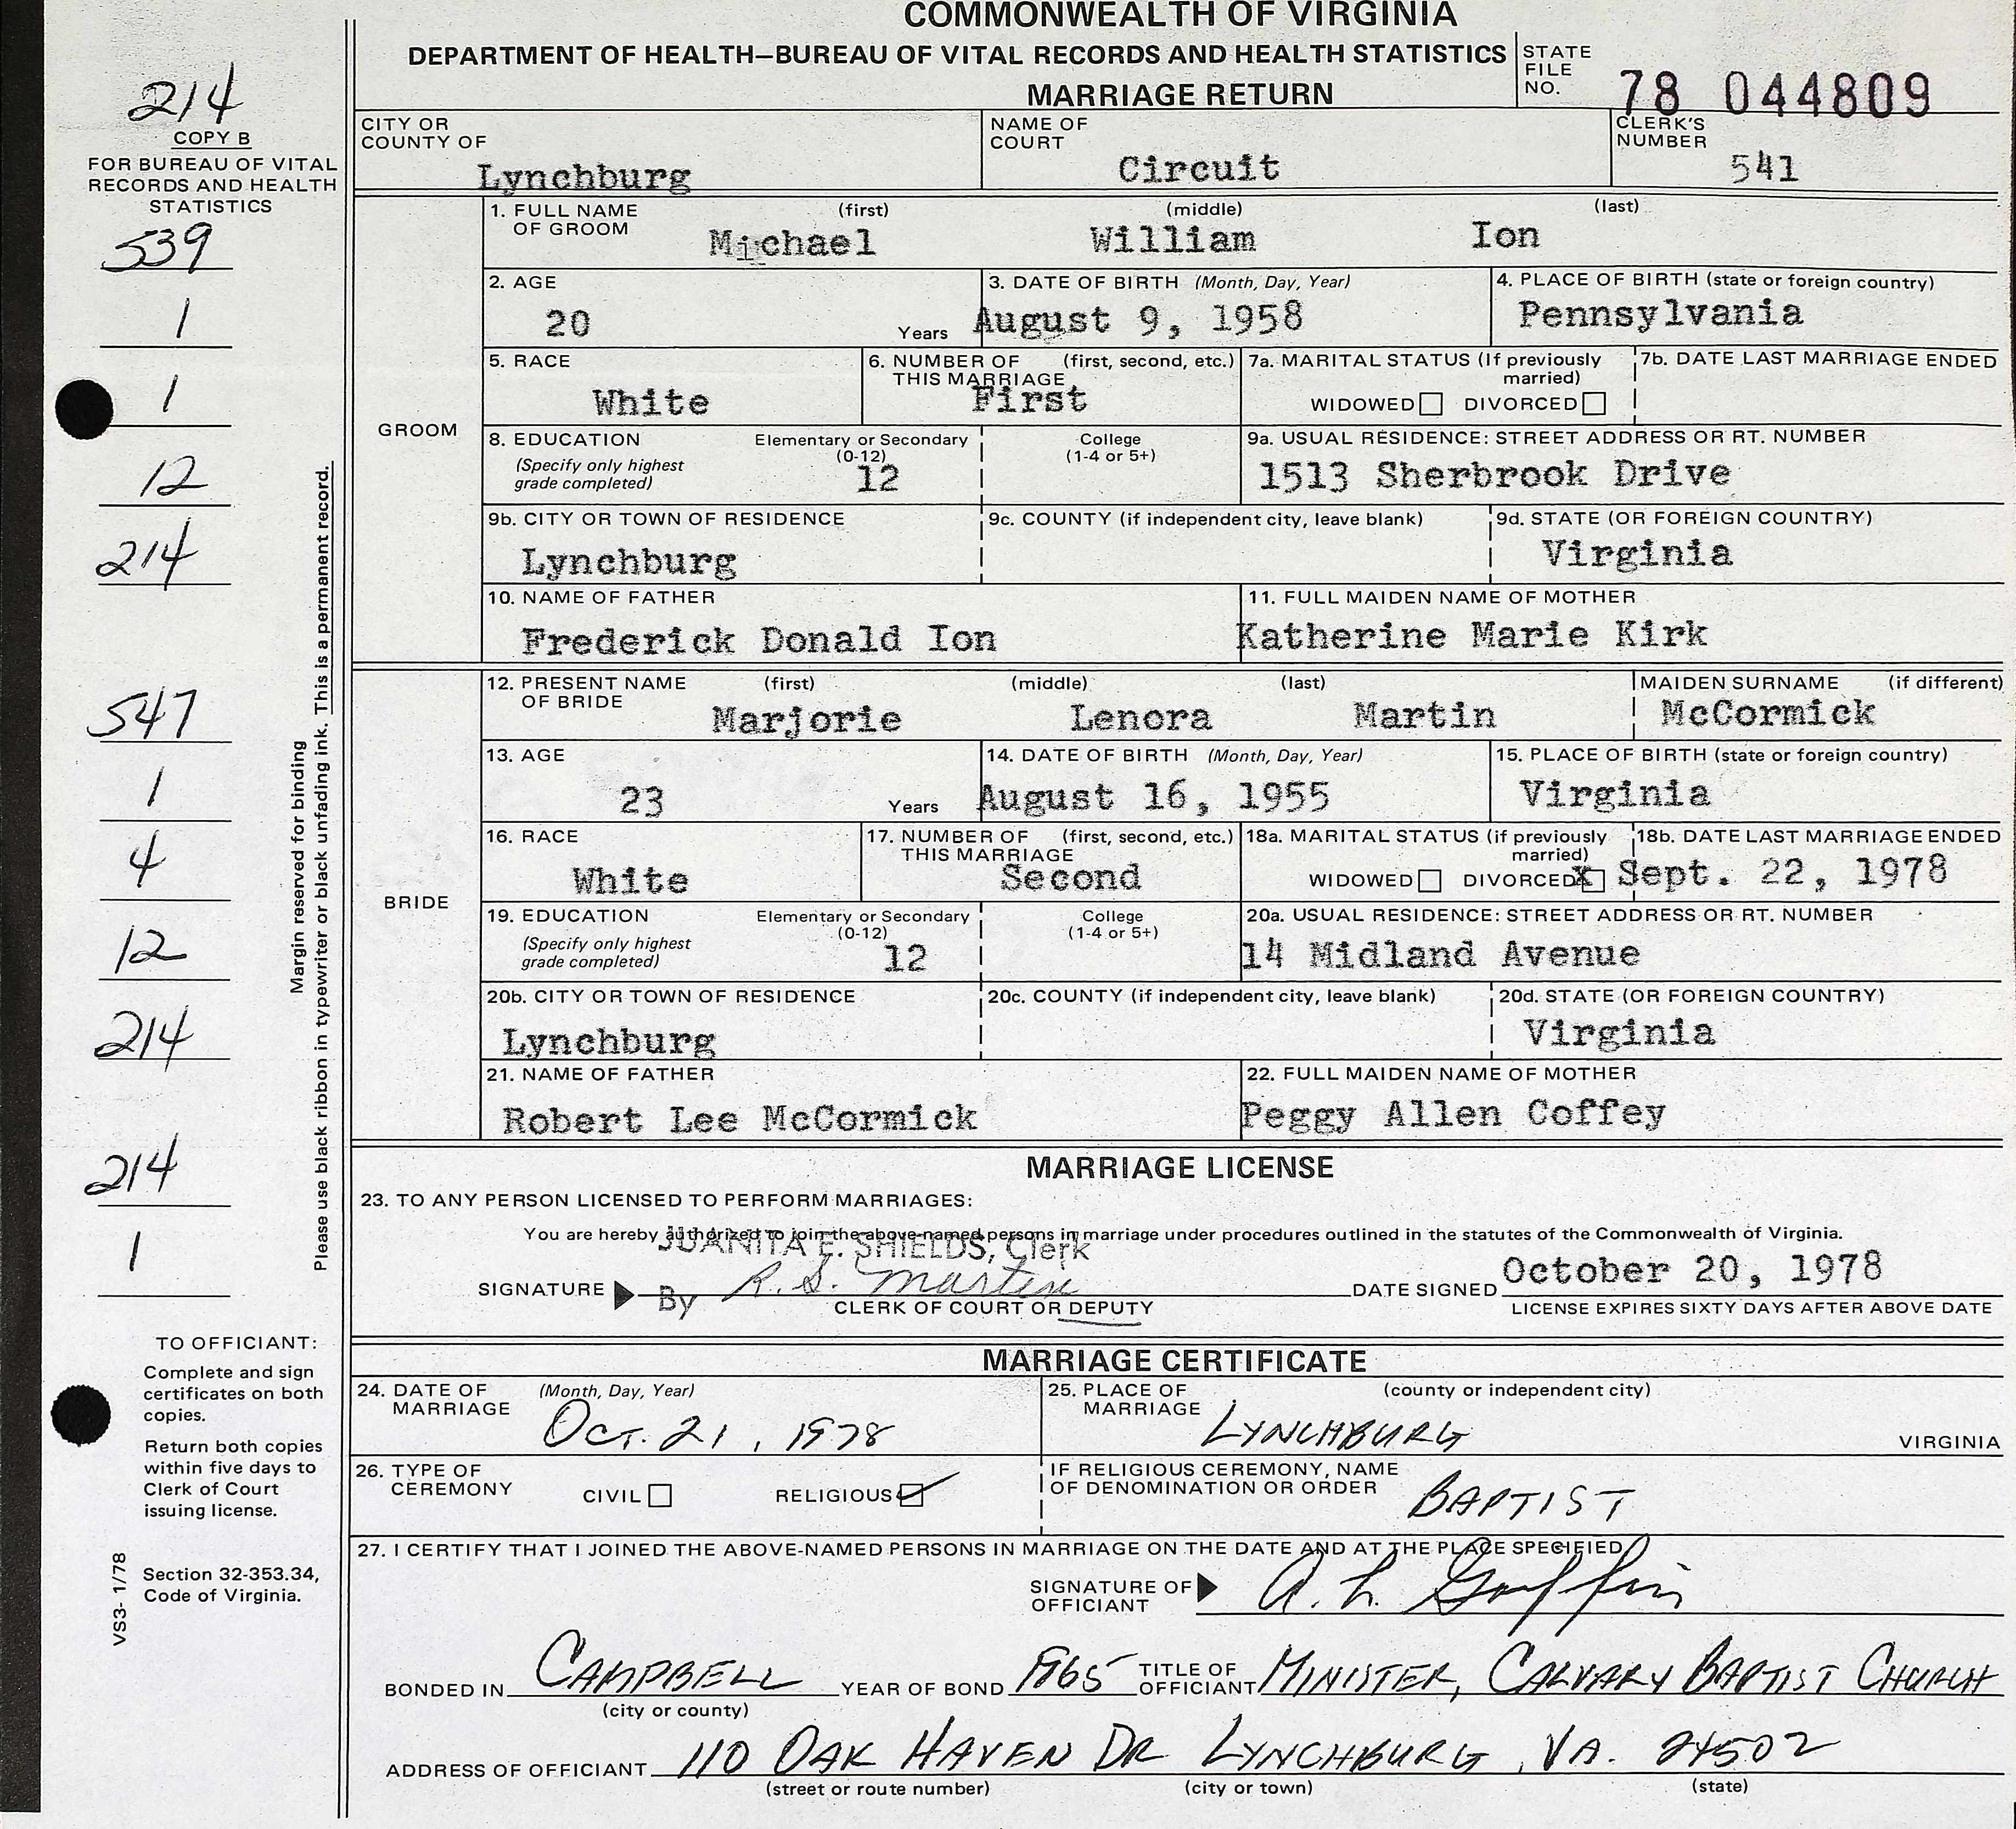 COMMONWEALTH OF VIRGINIA
DEPARTMENT OF HEALTH—BUREAU OF VITAL RECORDS AND HEALTH STATISTICS
MARRIAGE RETURN
STATE FILE NO. 78 044809
214
COPY B
FOR BUREAU OF VITAL
RECORDS AND HEALTH
STATISTICS
539
1
1
12
214
547
1
4
12
214
214
1
Margin reserved for binding
Please use black ribbon in typewriter or black unfading ink. This is a permanent record.
TO OFFICIANT:
Complete and sign
certificates on both
copies.
Return both copies
within five days to
Clerk of Court
issuing license.
Section 32-353.34,
Code of Virginia.
VS3- 1/78
CITY OR COUNTY OF Lynchburg
NAME OF COURT Circuit
CLERK'S NUMBER 541
GROOM
1. FULL NAME OF GROOM (first) Michael (middle) William (last) Ion
2. AGE 20 Years
3. DATE OF BIRTH (Month, Day, Year) August 9, 1958
4. PLACE OF BIRTH (state or foreign country) Pennsylvania
5. RACE White
6. NUMBER OF THIS MARRIAGE (first, second, etc.) First
7a. MARITAL STATUS (If previously married) WIDOWED DIVORCED
7b. DATE LAST MARRIAGE ENDED
8. EDUCATION (Specify only highest grade completed) Elementary or Secondary (0-12) 12 College (1-4 or 5+)
9a. USUAL RESIDENCE: STREET ADDRESS OR RT. NUMBER 1513 Sherbrook Drive
9b. CITY OR TOWN OF RESIDENCE Lynchburg
9c. COUNTY (if independent city, leave blank)
9d. STATE (OR FOREIGN COUNTRY) Virginia
10. NAME OF FATHER Frederick Donald Ion
11. FULL MAIDEN NAME OF MOTHER Katherine Marie Kirk
BRIDE
12. PRESENT NAME OF BRIDE (first) Marjorie (middle) Lenora (last) Martin MAIDEN SURNAME (if different) McCormick
13. AGE 23 Years
14. DATE OF BIRTH (Month, Day, Year) August 16, 1955
15. PLACE OF BIRTH (state or foreign country) Virginia
16. RACE White
17. NUMBER OF THIS MARRIAGE (first, second, etc.) Second
18a. MARITAL STATUS (if previously married) WIDOWED DIVORCED X
18b. DATE LAST MARRIAGE ENDED Sept. 22, 1978
19. EDUCATION (Specify only highest grade completed) Elementary or Secondary (0-12) 12 College (1-4 or 5+)
20a. USUAL RESIDENCE: STREET ADDRESS OR RT. NUMBER 14 Midland Avenue
20b. CITY OR TOWN OF RESIDENCE Lynchburg
20c. COUNTY (if independent city, leave blank)
20d. STATE (OR FOREIGN COUNTRY) Virginia
21. NAME OF FATHER Robert Lee McCormick
22. FULL MAIDEN NAME OF MOTHER Peggy Allen Coffey
MARRIAGE LICENSE
23. TO ANY PERSON LICENSED TO PERFORM MARRIAGES:
You are hereby authorized to join the above-named persons in marriage under procedures outlined in the statutes of the Commonwealth of Virginia.
JUANITA E. SHIELDS, Clerk
SIGNATURE By R. S. Martin DATE SIGNED October 20, 1978
CLERK OF COURT OR DEPUTY
LICENSE EXPIRES SIXTY DAYS AFTER ABOVE DATE
MARRIAGE CERTIFICATE
24. DATE OF MARRIAGE (Month, Day, Year) Oct. 21, 1978
25. PLACE OF MARRIAGE (county or independent city) LYNCHBURG VIRGINIA
26. TYPE OF CEREMONY CIVIL RELIGIOUS
IF RELIGIOUS CEREMONY, NAME OF DENOMINATION OR ORDER BAPTIST
27. I CERTIFY THAT I JOINED THE ABOVE-NAMED PERSONS IN MARRIAGE ON THE DATE AND AT THE PLACE SPECIFIED
SIGNATURE OF OFFICIANT A. L.
BONDED IN CAMPBELL YEAR OF BOND 1965 TITLE OF OFFICIANT MINISTER, CALVARY BAPTIST CHURCH
(city or county)
ADDRESS OF OFFICIANT 110 OAK HAVEN DR LYNCHBURG, VA. 24502
(street or route number) (city or town) (state)